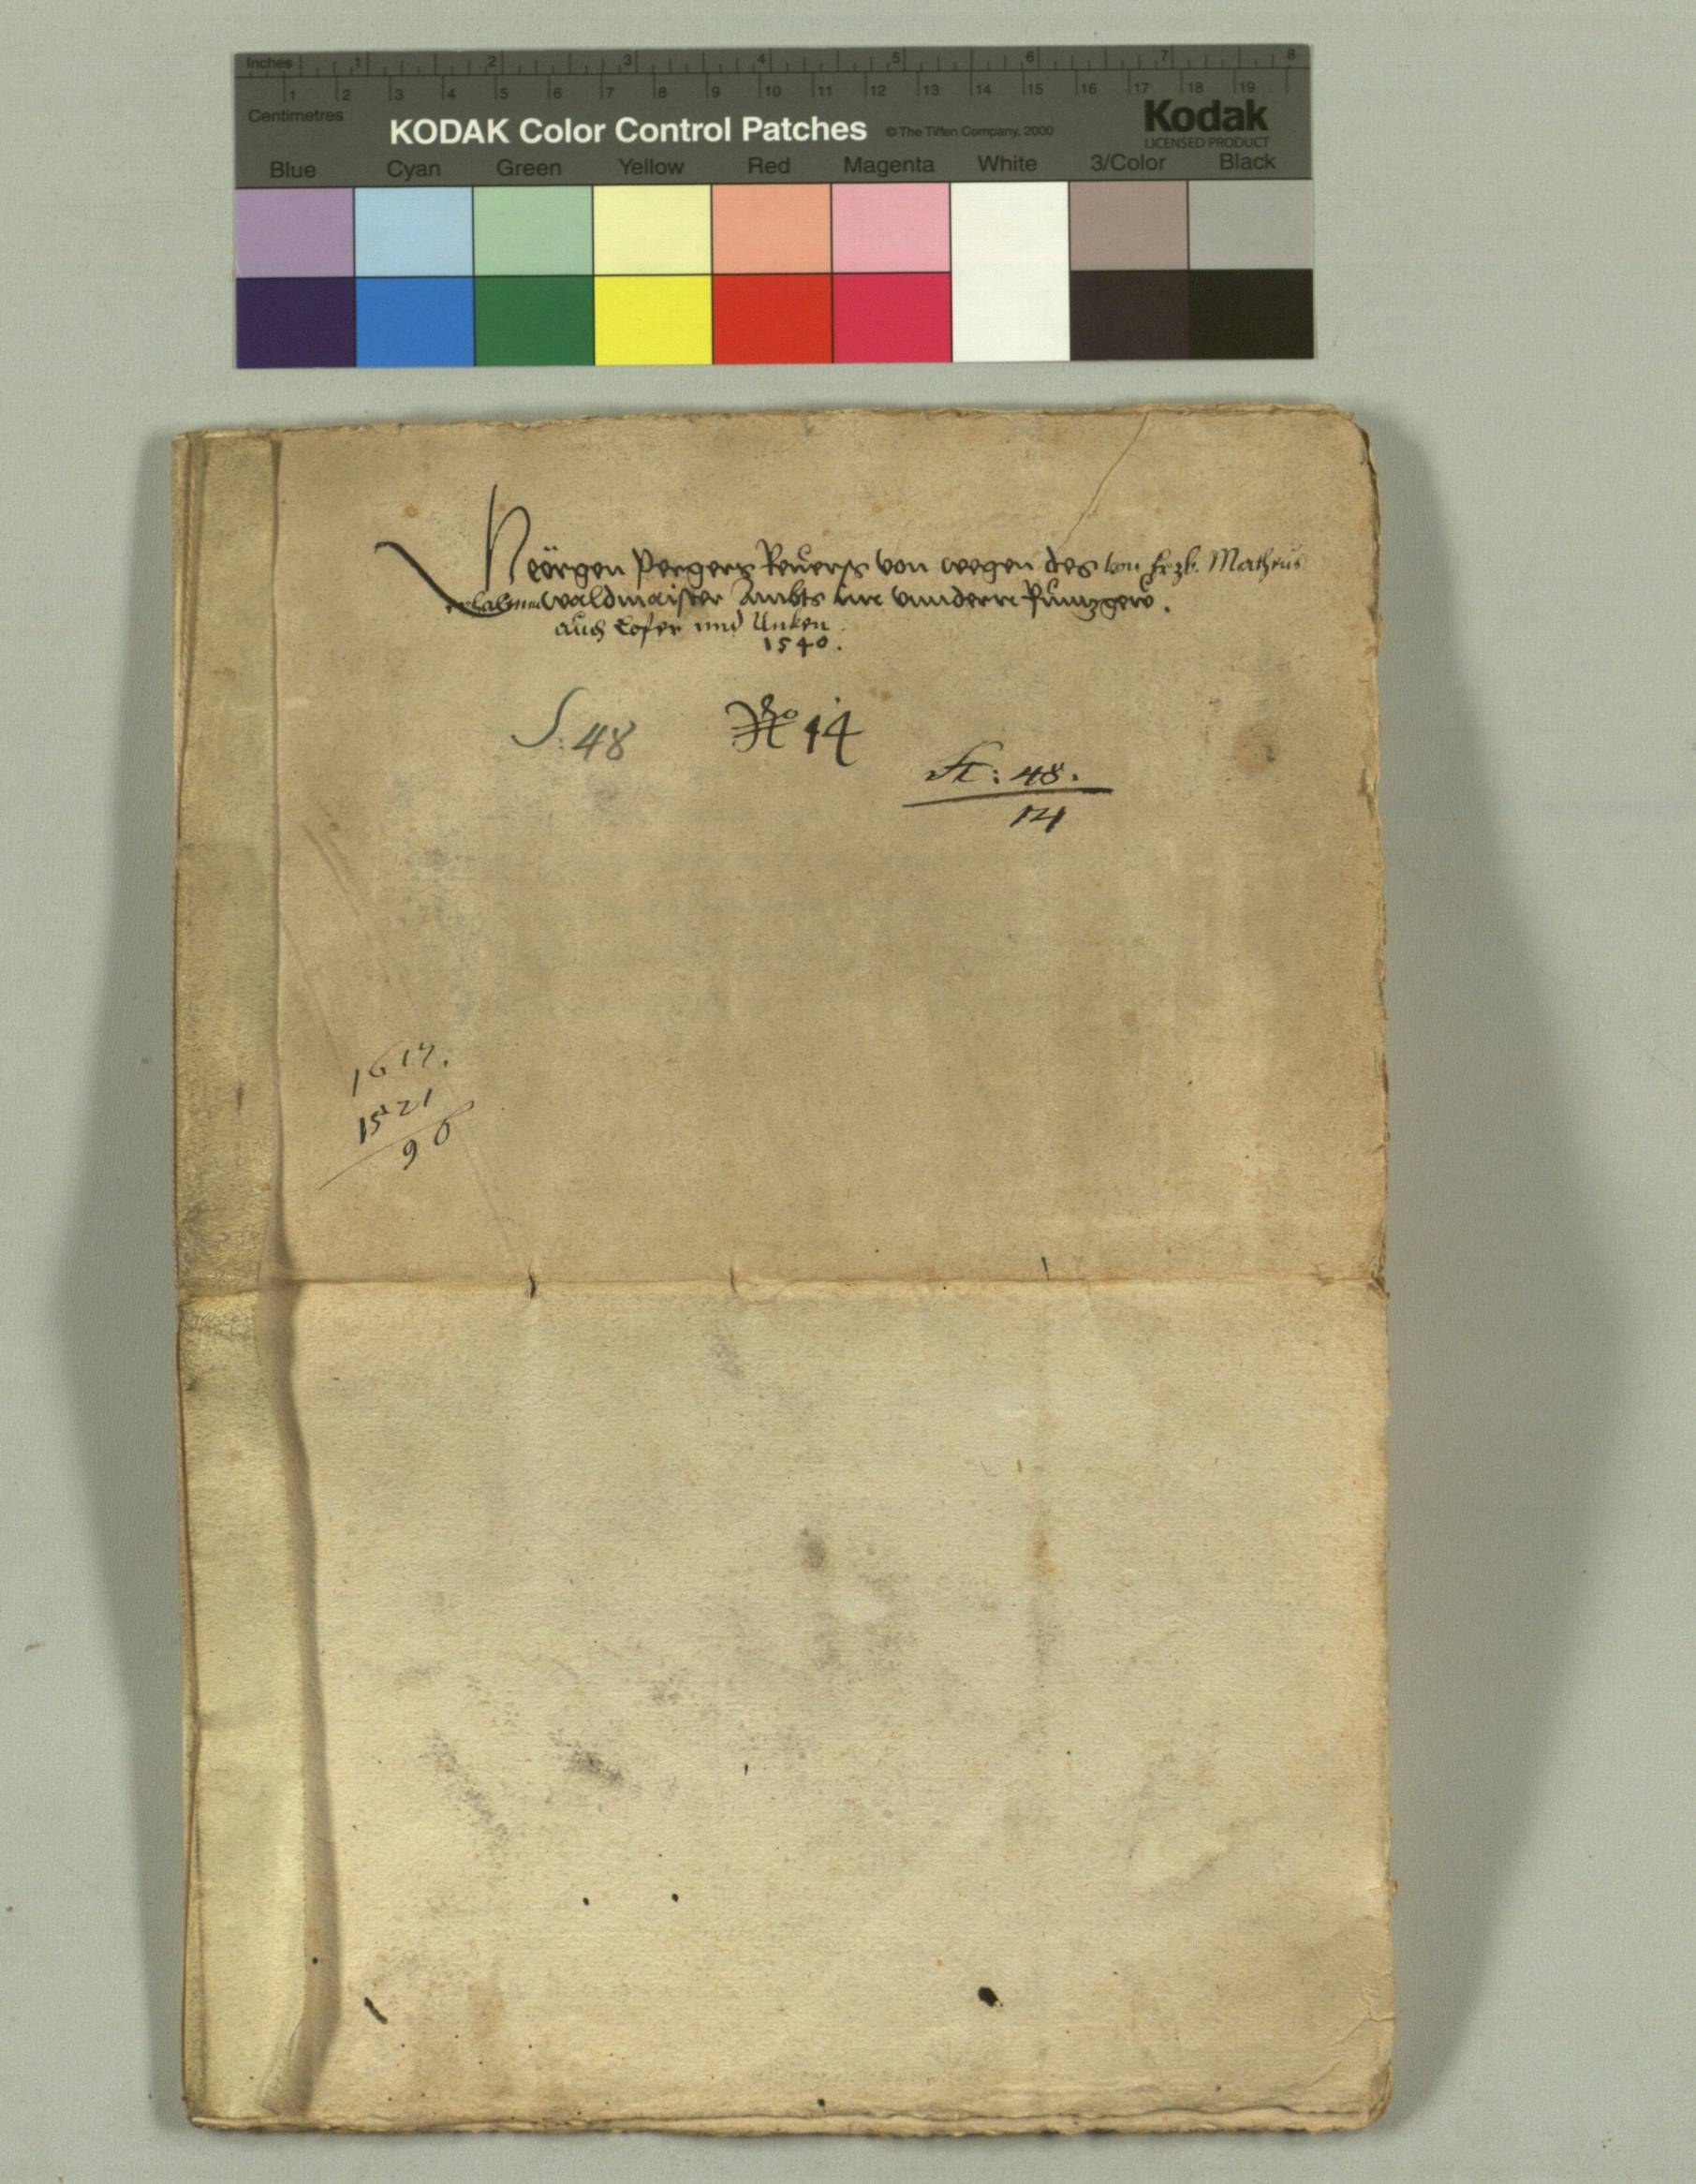 Inches 1 2 3 4 5 6 7 8
1 2 3 4 5 6 7 8 9 10 11 12 13 14 15 16 17 18 19
Centimetres
KODAK Color Control Patches © The Tiffen Company, 2000 Kodak
LICENSED PRODUCT
Blue Cyan Green Yellow Red Magenta White 3/Color Black
Geörgen Pergers Reuerss von wegen des von Erzb. Matheus
erhabnen waldmaister Ambts im vnndern Pinnzgew.
auch Lofer und Unken.
1540.
S: 48 No 14
K: 48.
14
1617.
1521
96